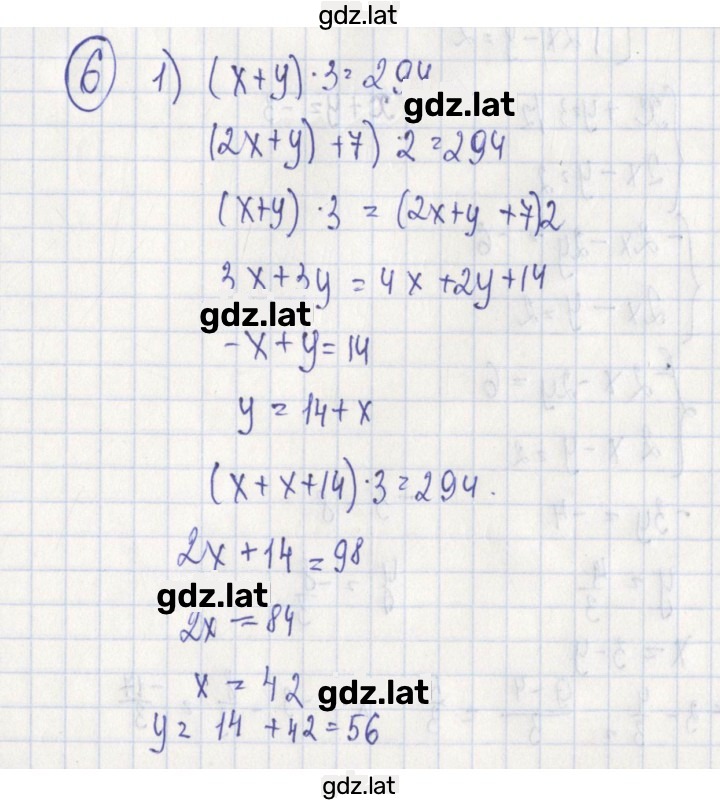 gdz.lat
6 1) (x+y)·3=294
gdz.lat
(2x+y)+7)·2=294
(x+y)·3 = (2x+y+7)2
3x+3y=4x+2y+14
gdz.lat
-x+y=14
y=14+x
(x+x+14)·3=294.
2x+14=98
gdz.lat
2x=84
x=42
gdz.lat
y=14+42=56
gdz.lat